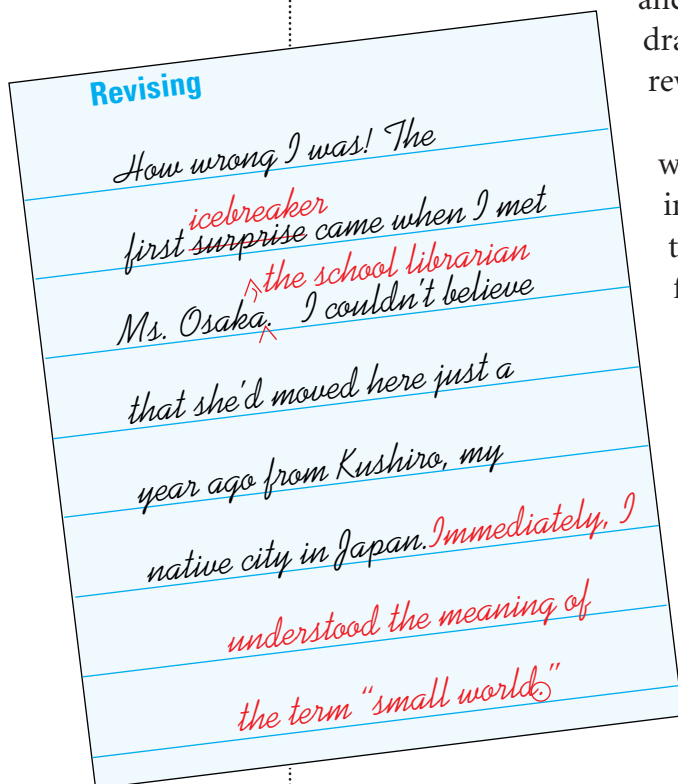 Revising
How wrong I was! The
icebreaker
first surprise came when I met
the school librarian
Ms. Osaka. I couldn't believe
that she'd moved here just a
year ago from Kushiro, my
native city in Japan. Immediately, I
understood the meaning of
the term “small world.”